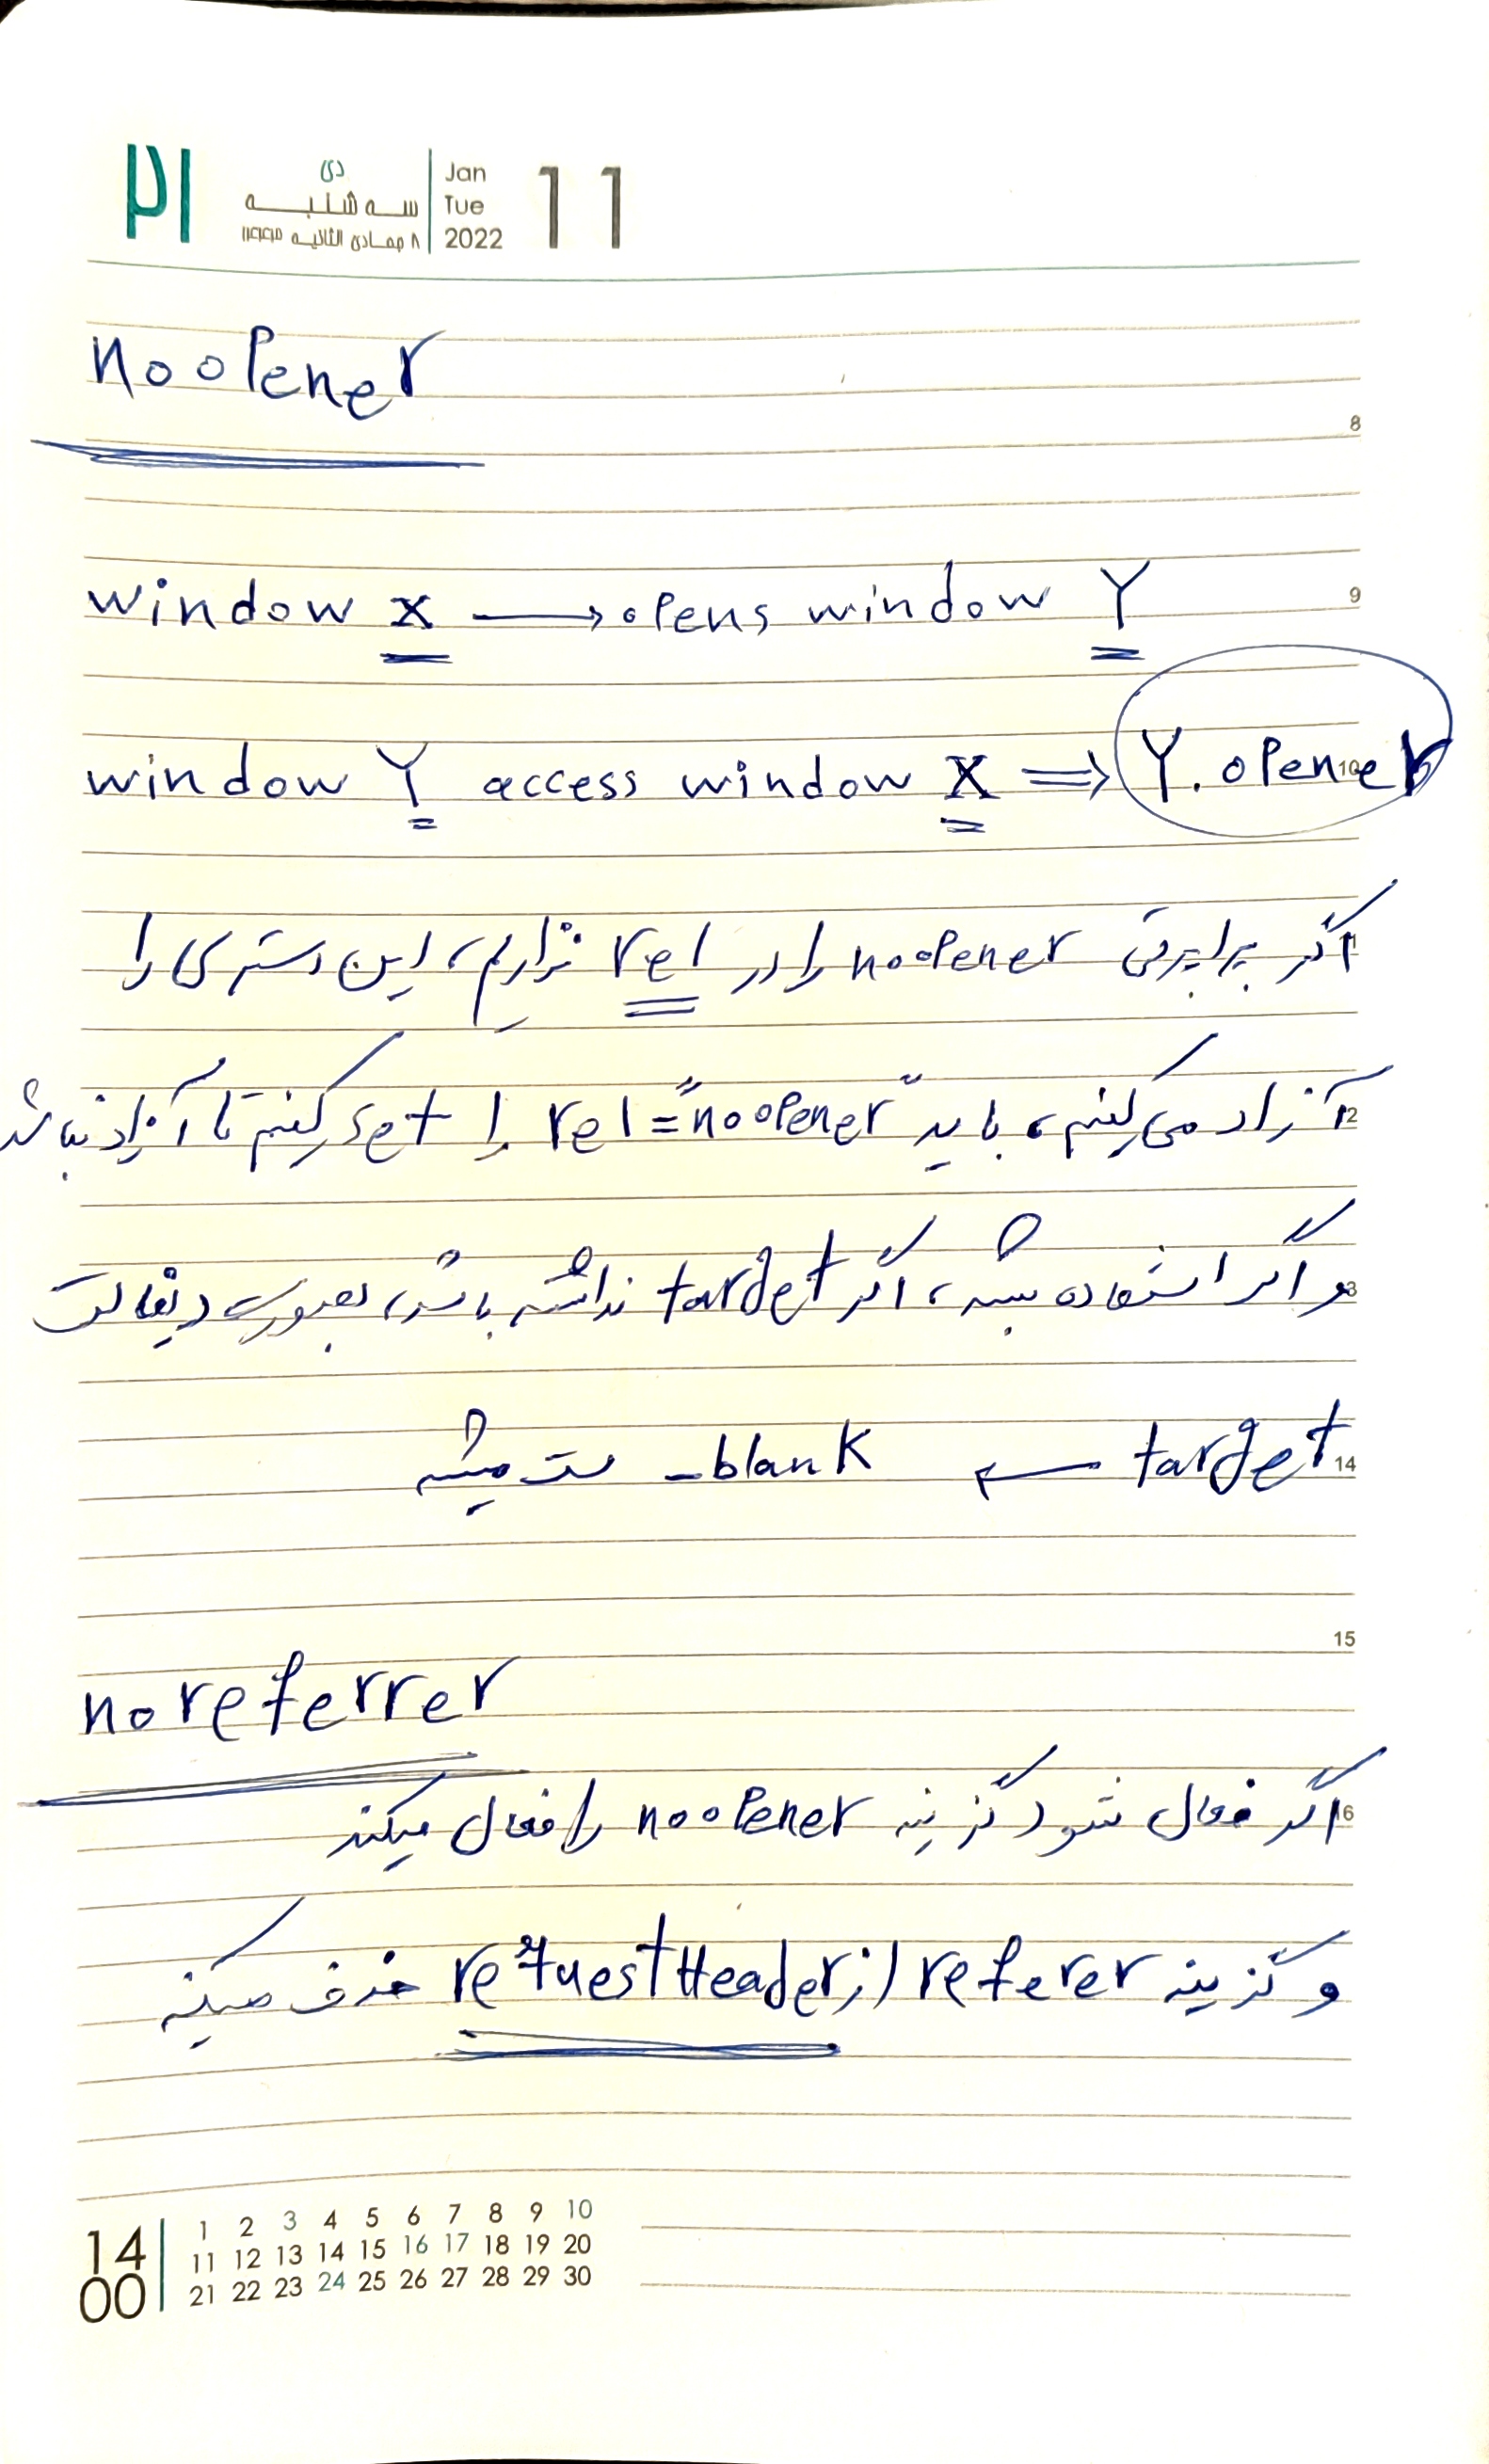 ۲۱
دی
سه شنبه
۸ جمادی الثانیه ۱۴۴۳
Jan
Tue
2022
11
noopener
8
window x → opens window Y
9
window Y access window X ⇒ Y.opener
10
اگر پراپرتی noopener را در rel نزاریم، این دسترسی را
آزاد می‌کنیم، باید rel="noopener" را set کنیم تا آزاد نباشد
12
و اگر استفاده بشه، اگر target نداشته باشد، بصورت دیفالت
13
target ← _blank ست میشه
14
15
noreferrer
اگر فعال شود گزینه noopener را فعال میکند
16
و گزینه referer را از requestHeader حذف میکنه
14
00
1 2 3 4 5 6 7 8 9 10
11 12 13 14 15 16 17 18 19 20
21 22 23 24 25 26 27 28 29 30